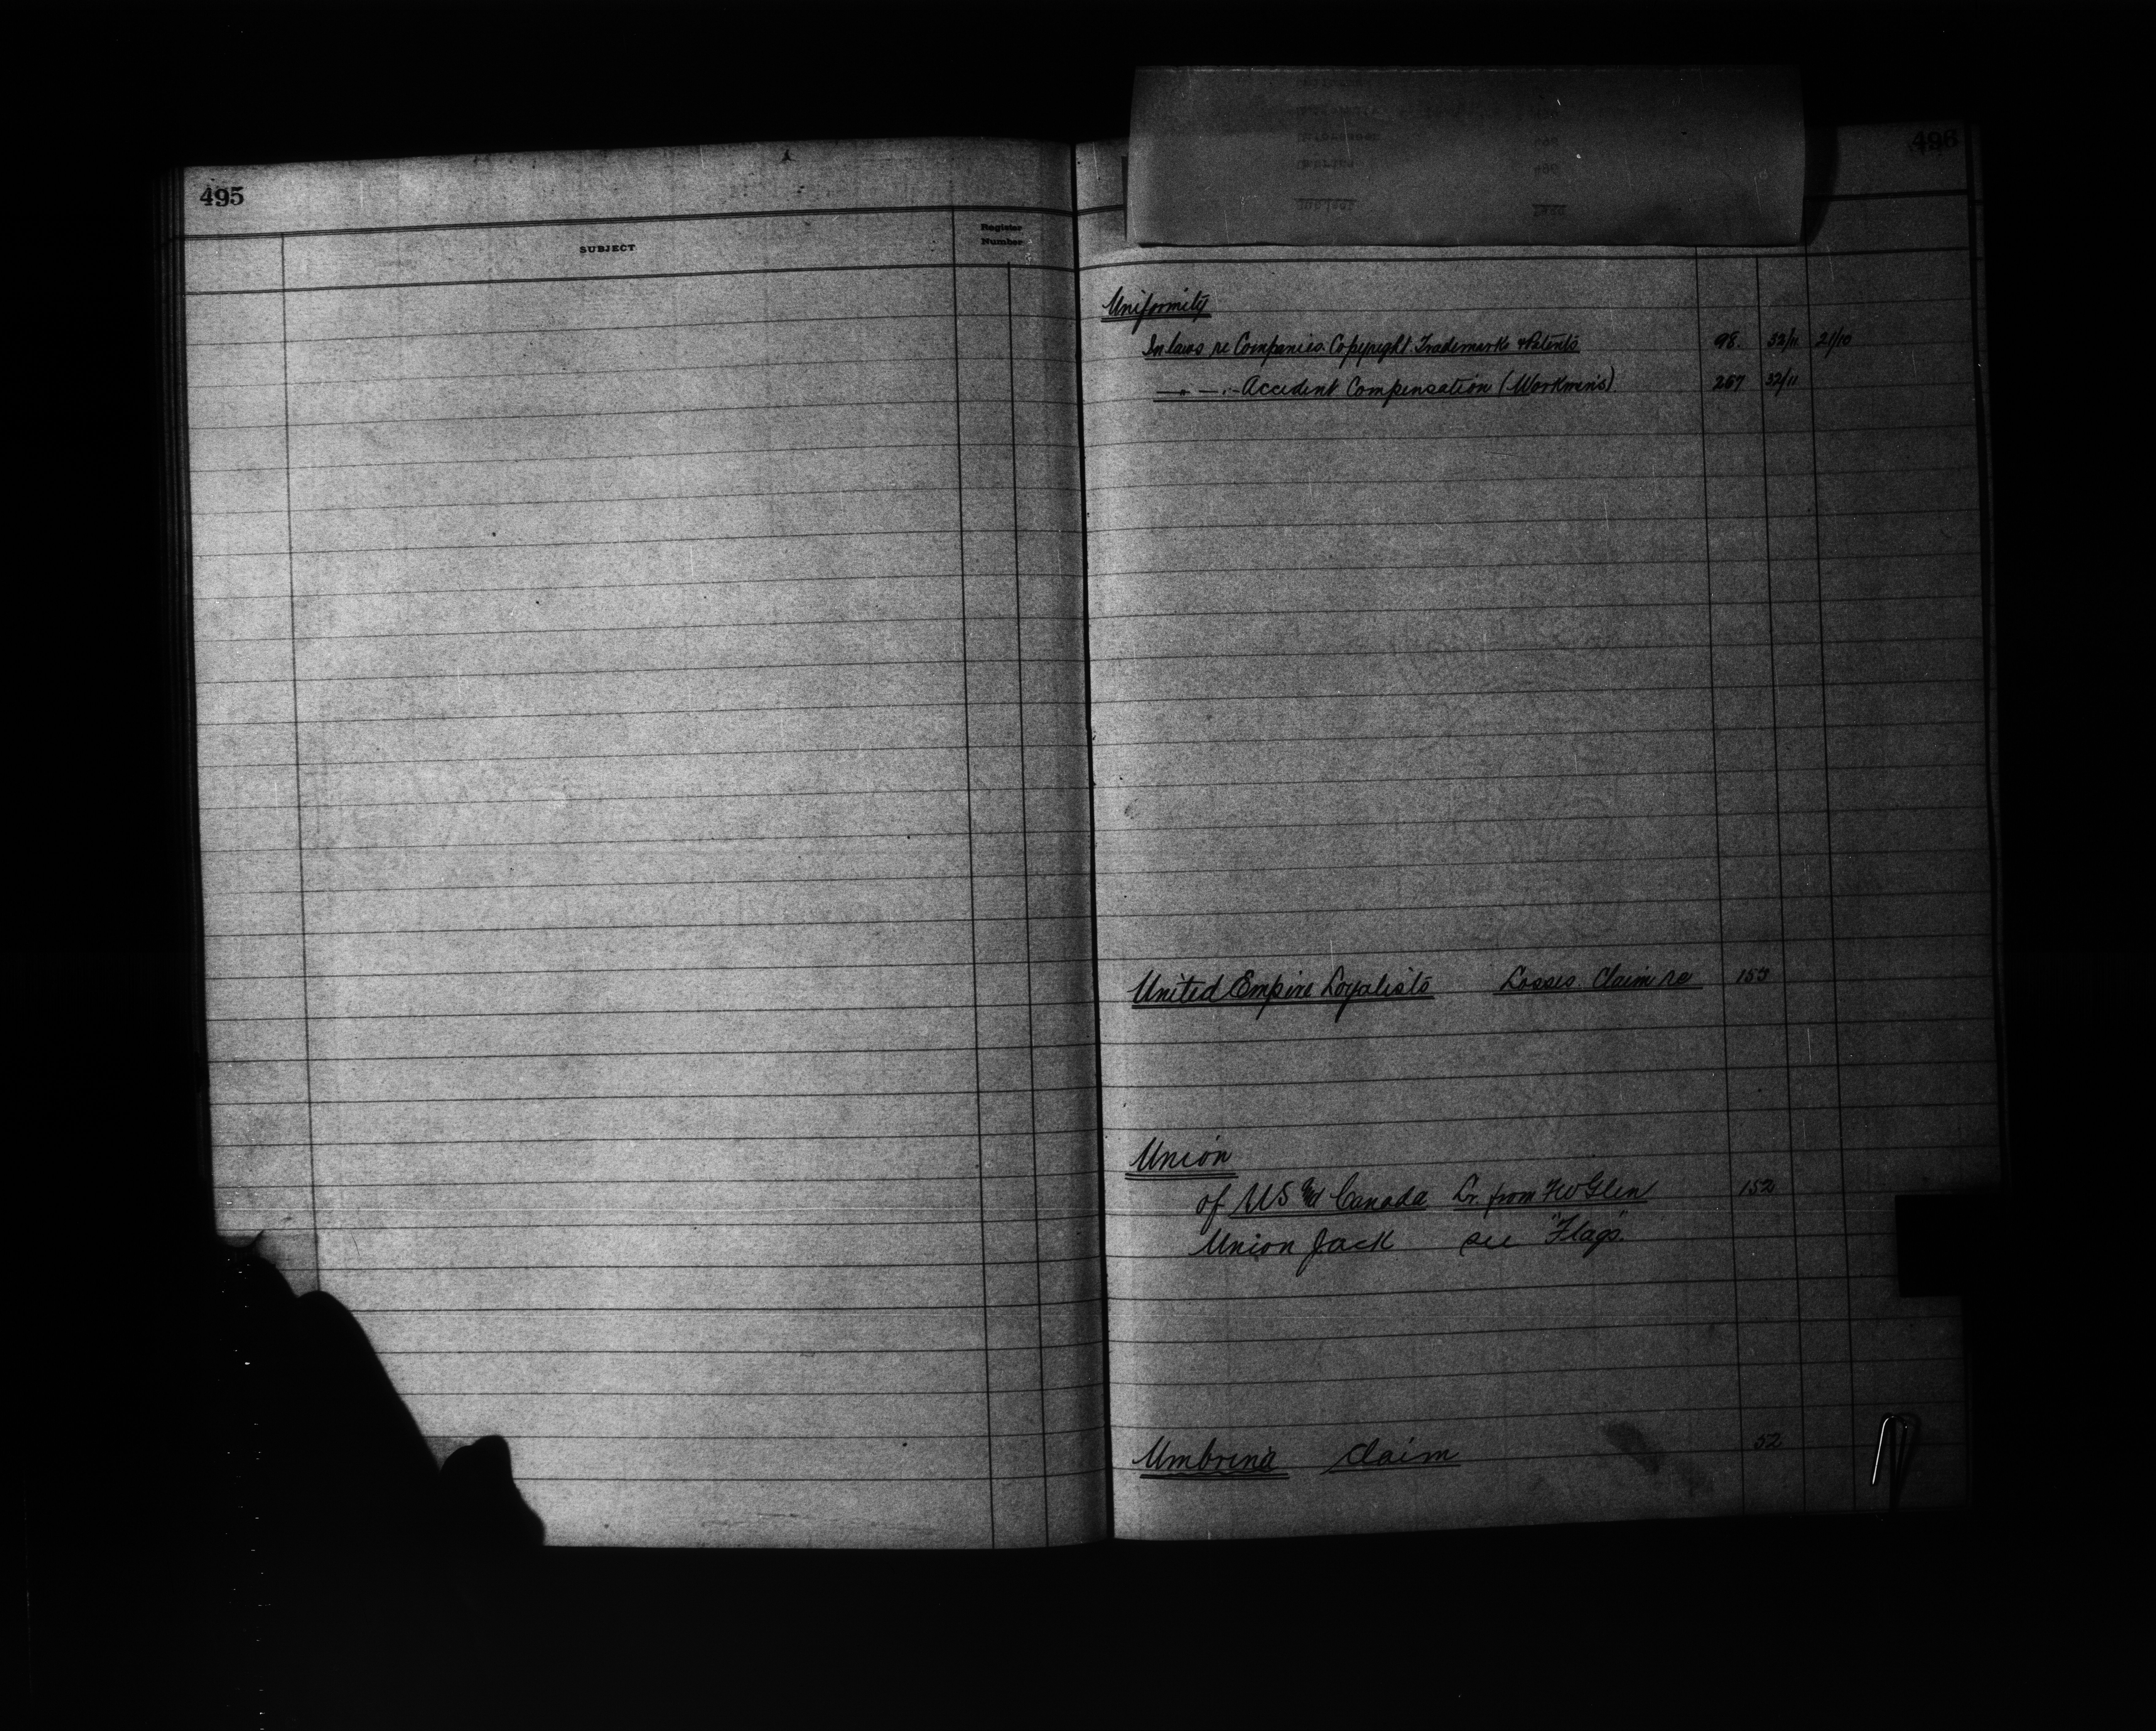 495
SUBJECT
Register
Number
496
Uniformity
In laws re Companies. Copyright. Trademarks & Patents 98. 32/11 21/10
—"— —"— Accident Compensation (Workmen's) 267 32/11
United Empire Loyalists Losses. Claim re 153
Union
of US and Canada Lr. from F W Glen 152
Union Jack see "Flags".
Umbrina Claim 52